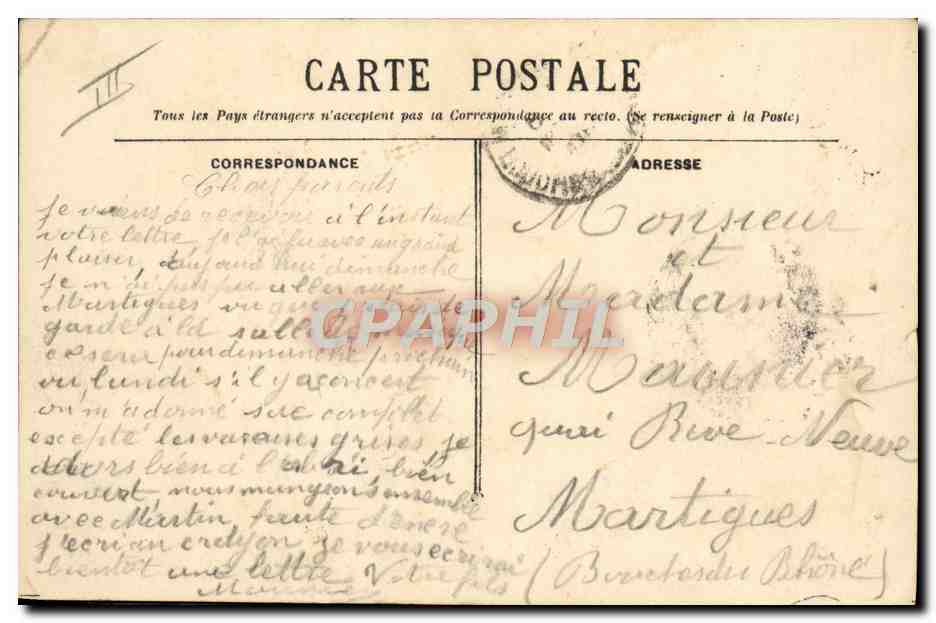 III
CARTE POSTALE
Tous les Pays étrangers n'acceptent pas la Correspondance au recto. (Se renseigner à la Poste)
CORRESPONDANCE
Chers parents
je viens de recevoir à l'instant
votre lettre, je l'ai lu avec un grand
plaisir, aujourd'hui dimanche
je n'ai pas pu aller aux
Martigues vu que je suis de
garde à la salle
ce sera pour dimanche prochain
ou lundi s'il y a concert
on m'a donné complet
excepté les vareuses grises, je
dors bien à l'abri, bien
couvert nous mangeons ensemble
avec Martin, faute d'encre
j'écri au crayon je vous ecrirai
bientot une lettre Votre fils
Maunier
ADRESSE
Monsieur
et
Madame
Maunier
quai Rive-Neuve
Martigues
(Bouches du Rhône)
CPAPHIL